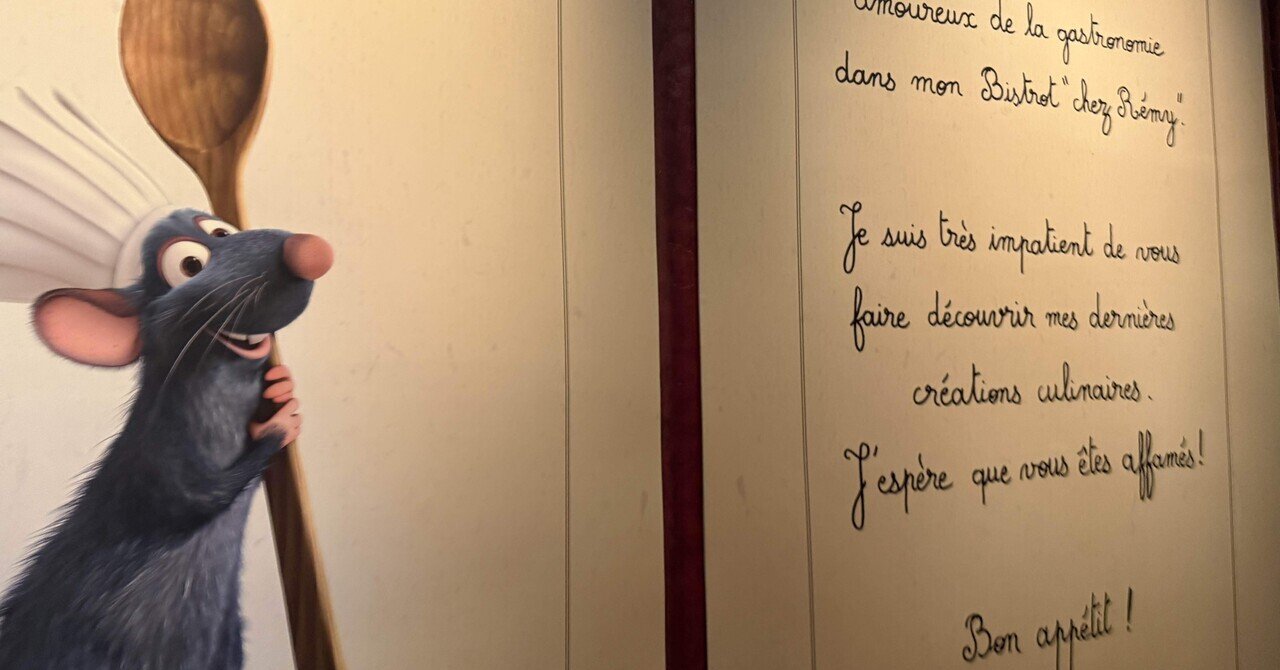 amoureux de la gastronomie
dans mon Bistrot "chez Rémy".
Je suis très impatient de vous
faire découvrir mes dernières
créations culinaires.
J'espère que vous êtes affamés!
Bon appétit !